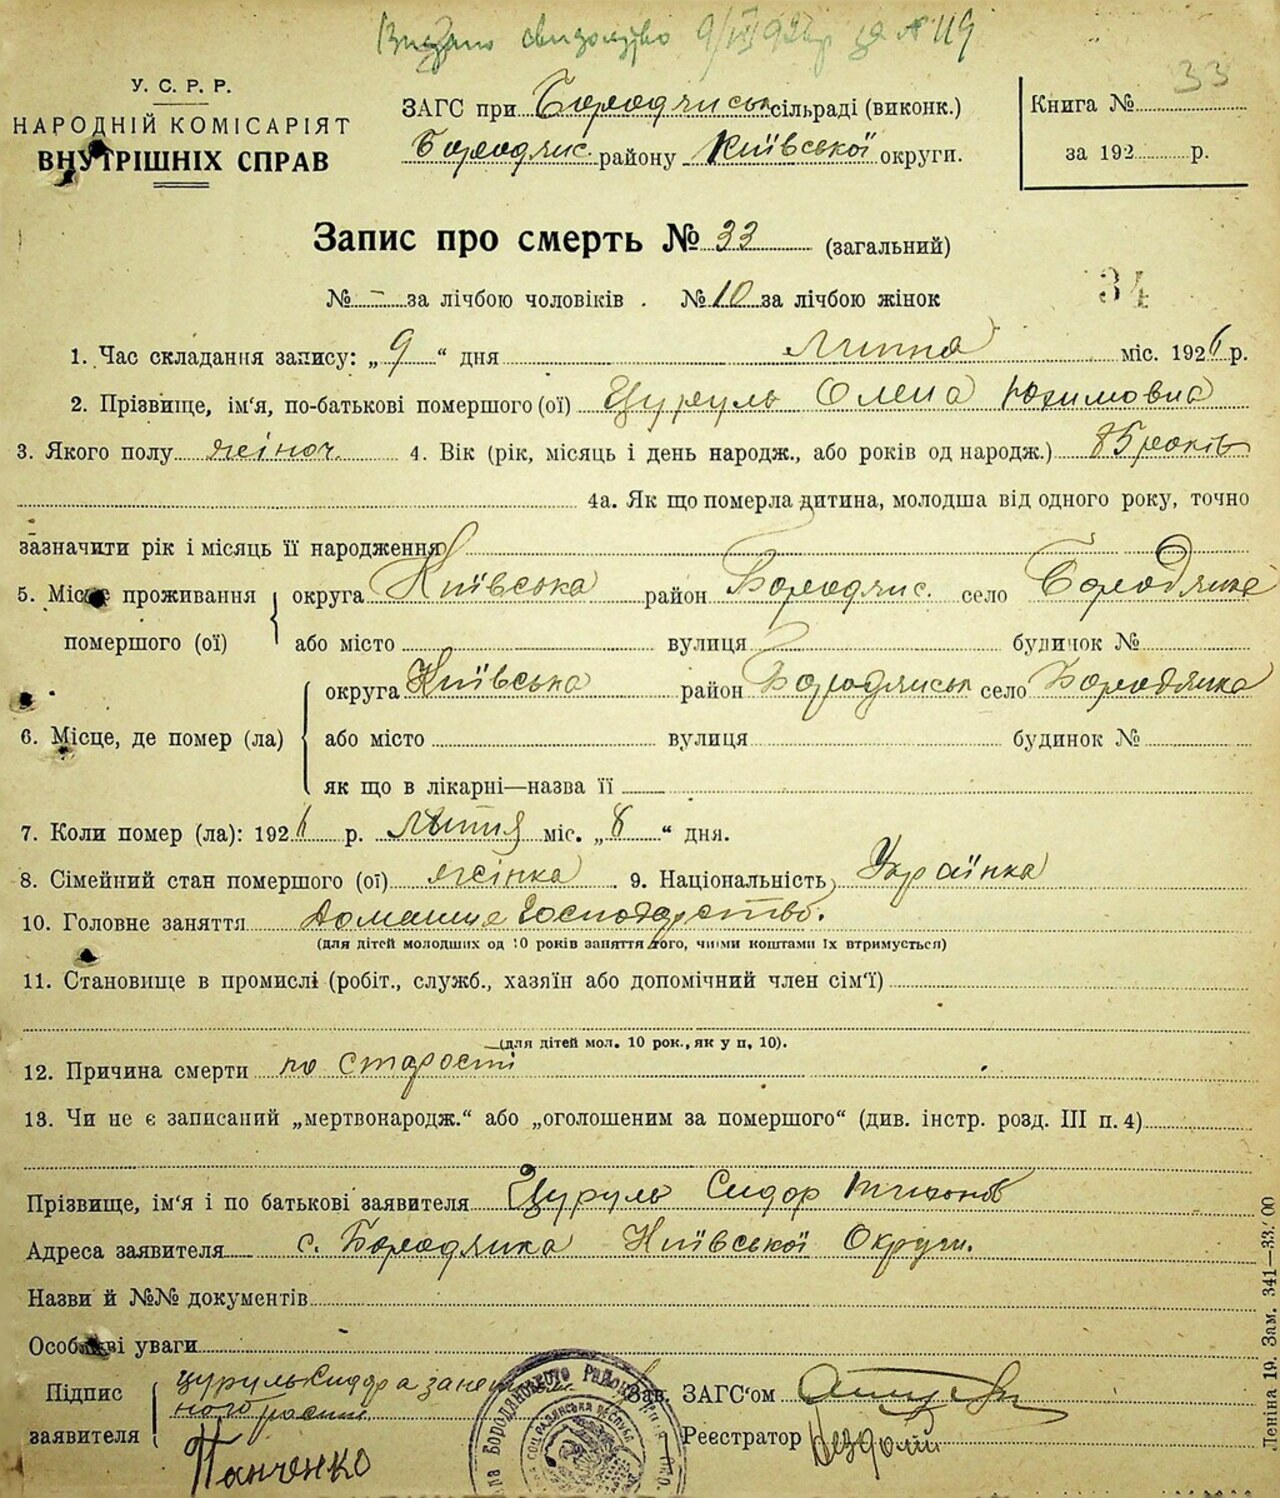 Видано свидоцтво 9/VII 1926 р за № 119
33
У. С. Р. Р.
НАРОДНІЙ КОМІСАРІЯТ
ВНУТРІШНІХ СПРАВ
ЗАГС при Бородянськ сільраді (виконк.)
Бородянс. району Київської округи.
Книга №
за 192 р.
Запис про смерть № 33 (загальний)
№ – за лічбою чоловіків . № 10 за лічбою жінок
34
1. Час складання запису: „ 9 “ дня Липня міс. 1926 р.
2. Прізвище, ім'я, по-батькові помершого (ої) Цуруль Олена Юхимовна
3. Якого полу жіноч. 4. Вік (рік, місяць і день народж., або років од народж.) 85 років
4а. Як що померла дитина, молодша від одного року, точно
зазначити рік і місяць її народження
5. Місце проживання помершого (ої) округа Київська район Бородянс. село Бородянка
або місто вулиця будинок №
6. Місце, де помер (ла) округа Київська район Бородянськ село Бородянка
або місто вулиця будинок №
як що в лікарні—назва її
7. Коли помер (ла): 1926 р. Липня міс. „ 8 “ дня.
8. Сімейний стан помершого (ої) жінка 9. Національність Українка
10. Головне заняття Домашнє Господарство.
(для дітей молодших од 10 років заняття того, чиїми коштами їх втримується)
11. Становище в промислі (робіт., служб., хазяїн або допомічний член сім'ї)
(для дітей мол. 10 рок., як у п. 10).
12. Причина смерти по старости
13. Чи не є записаний „мертвонародж.“ або „оголошеним за помершого“ (див. інстр. розд. III п. 4)
Прізвище, ім'я і по батькові заявителя Цуруль Сидор Тихонов
Адреса заявителя с. Бородянка Київської Округи.
Назви й №№ документів
Особливі уваги
Підпис заявителя Цуруль Сидора
Панченко
Зав. ЗАГС'ом
Реєстратор
Леніна 19. Зам. 341—33.